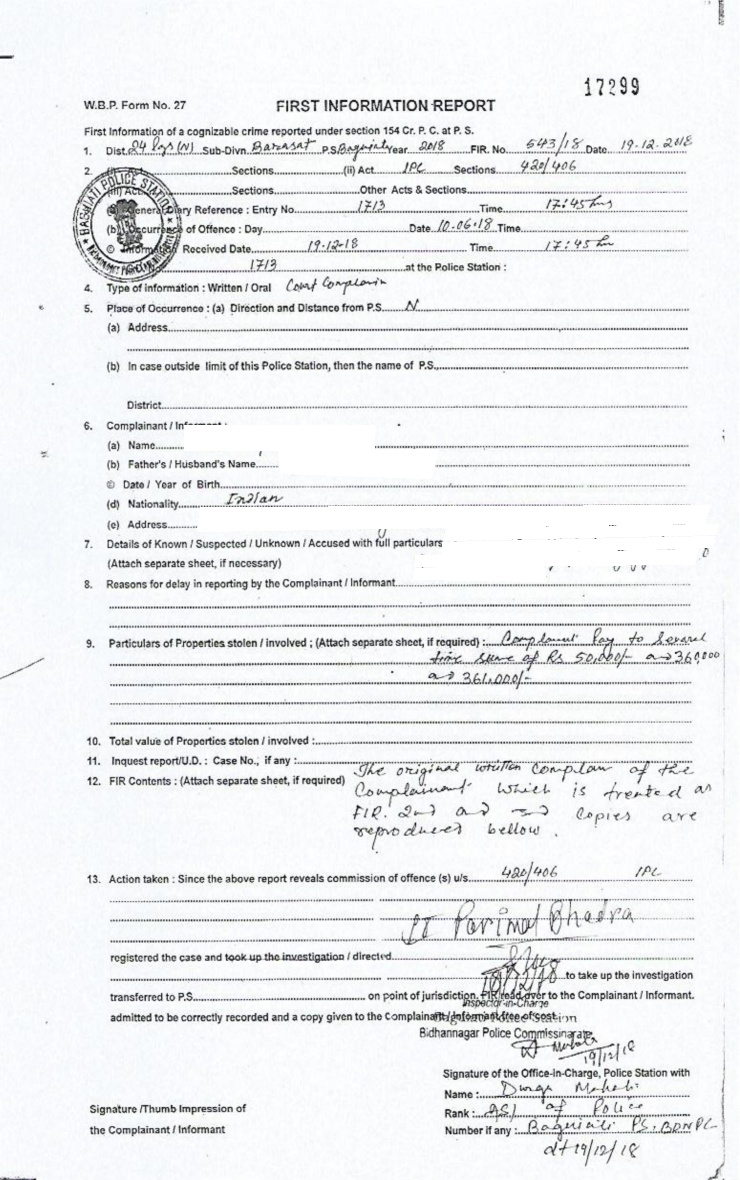 17299
W.B.P. Form No. 27 FIRST INFORMATION REPORT
First Information of a cognizable crime reported under section 154 Cr. P. C. at P. S.
1. Dist. 24 Pgs (N) Sub-Divn. Barasat P.S. Baguiati Year 2018 FIR. No. 543/18 Date 19.12.2018
2. Sections (ii) Act IPC Sections 420/406
(iii) Act Sections Other Acts & Sections
(a) General Diary Reference : Entry No. 1713 Time 17:45 hrs
(b) Occurrence of Offence : Day Date 10.06.18 Time
© Information Received Date 19-12-18 Time 17:45 hr
1713 at the Police Station :
BAGUIATI POLICE STATION
4. Type of information : Written / Oral Court Complain
5. Place of Occurrence : (a) Direction and Distance from P.S. N
(a) Address
(b) In case outside limit of this Police Station, then the name of P.S.
District
6. Complainant /
(a) Name
(b) Father's / Husband's Name
© Date / Year of Birth
(d) Nationality Indian
(e) Address
7. Details of Known / Suspected / Unknown / Accused with full particulars
(Attach separate sheet, if necessary)
8. Reasons for delay in reporting by the Complainant / Informant
9. Particulars of Properties stolen / involved ; (Attach separate sheet, if required) : Complainant Pay to Several
time of Rs 50,000/- and 360,000
and 361,000/-
10. Total value of Properties stolen / involved :
11. Inquest report/U.D. : Case No., if any :
12. FIR Contents : (Attach separate sheet, if required) The original written complain of the
Complainant which is treated as
FIR. 2nd and copies are
reproduced bellow.
13. Action taken : Since the above report reveals commission of offence (s) u/s. 420/406 IPC
Parimal Bhadra
registered the case and took up the investigation / directed
to take up the investigation
transferred to P.S. on point of jurisdiction. FIR read over to the Complainant / Informant.
Inspector-in-Charge
admitted to be correctly recorded and a copy given to the Complainant/Informant free of cost
Bidhannagar Police Commissionarate
19/12/18
Signature of the Office-in-Charge, Police Station with
Name : Durga
Signature /Thumb Impression of Rank : ASI of Police
the Complainant / Informant Number if any : Baguiati PS. BDNPC
dt 19/12/18